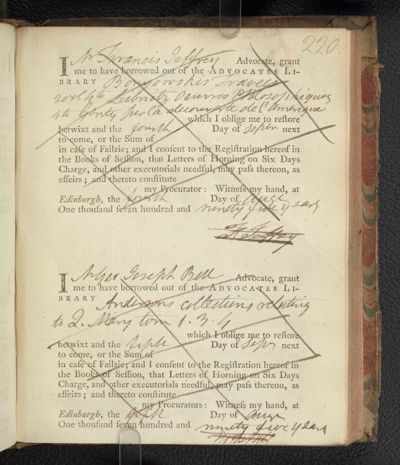 220.
I Mr Francis Jeffrey Advocate, grant
me to have borrowed out of the ADVOCATES LI-
BRARY
4to Leibnitz Oeuvres Philosophiques
4to Genty sur la decouverte de l'Amerique
which I oblige me to reſtore
betwixt and the fourth Day of next
to come, or the Sum of
in caſe of Failzie; and I conſent to the Regiſtration hereof in
the Books of Seſſion, that Letters of Horning on Six Days
Charge, and other executorials needful, may paſs thereon, as
effeirs; and thereto conſtitute
my Procurator: Witneſs my hand, at
Edinburgh, the fourth Day of
One thouſand ſeven hundred and ninety five years
F Jeffrey
I Joseph Bell Advocate, grant
me to have borrowed out of the ADVOCATES LI-
BRARY
Andersons collections relating
to Q. Mary tom 1. 3.
which I oblige me to reſtore
betwixt and the Day of next
to come, or the Sum of
in caſe of Failzie; and I conſent to the Regiſtration hereof in
the Books of Seſſion, that Letters of Horning on Six Days
Charge, and other executorials needful, may paſs thereon, as
effeirs; and thereto conſtitute
my Procurators: Witneſs my hand, at
Edinburgh, the Day of
One thouſand ſeven hundred and ninety five years